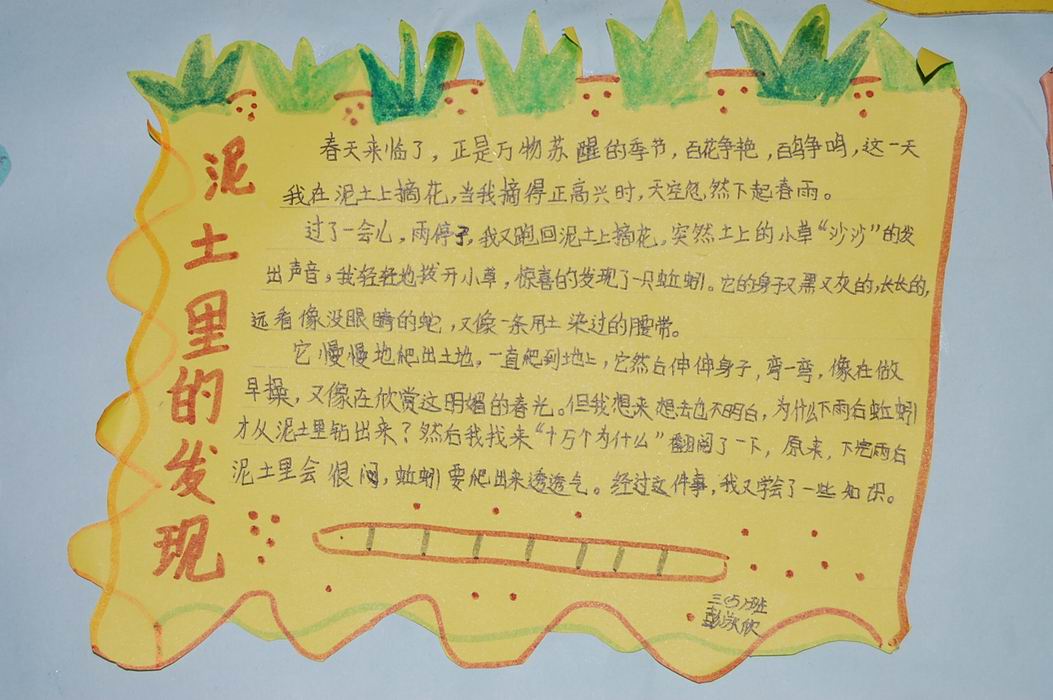 泥土里的发现
春天来临了，正是万物苏醒的季节，百花争艳，百鸟争鸣，这一天
我在泥土上摘花，当我摘得正高兴时，天空忽然下起春雨。
过了一会儿，雨停了，我又跑回泥土上摘花，突然土上的小草“沙沙”的发
出声音，我轻轻地拨开小草，惊喜的发现了一只蚯蚓。它的身子又黑又灰的，长长的，
远看像没眼睛的蛇，又像一条用土染过的腰带。
它慢慢地爬出土地，一直爬到地上，它然后伸伸身子，弯一弯，像在做
早操，又像在欣赏这明媚的春光。但我想来想去也不明白，为什么下雨后蚯蚓
才从泥土里钻出来？然后我找来“十万个为什么”翻阅了一下，原来，下完雨后
泥土里会很闷，蚯蚓要爬出来透透气。经过这件事，我又学会了一些知识。
三(5)班
彭欣